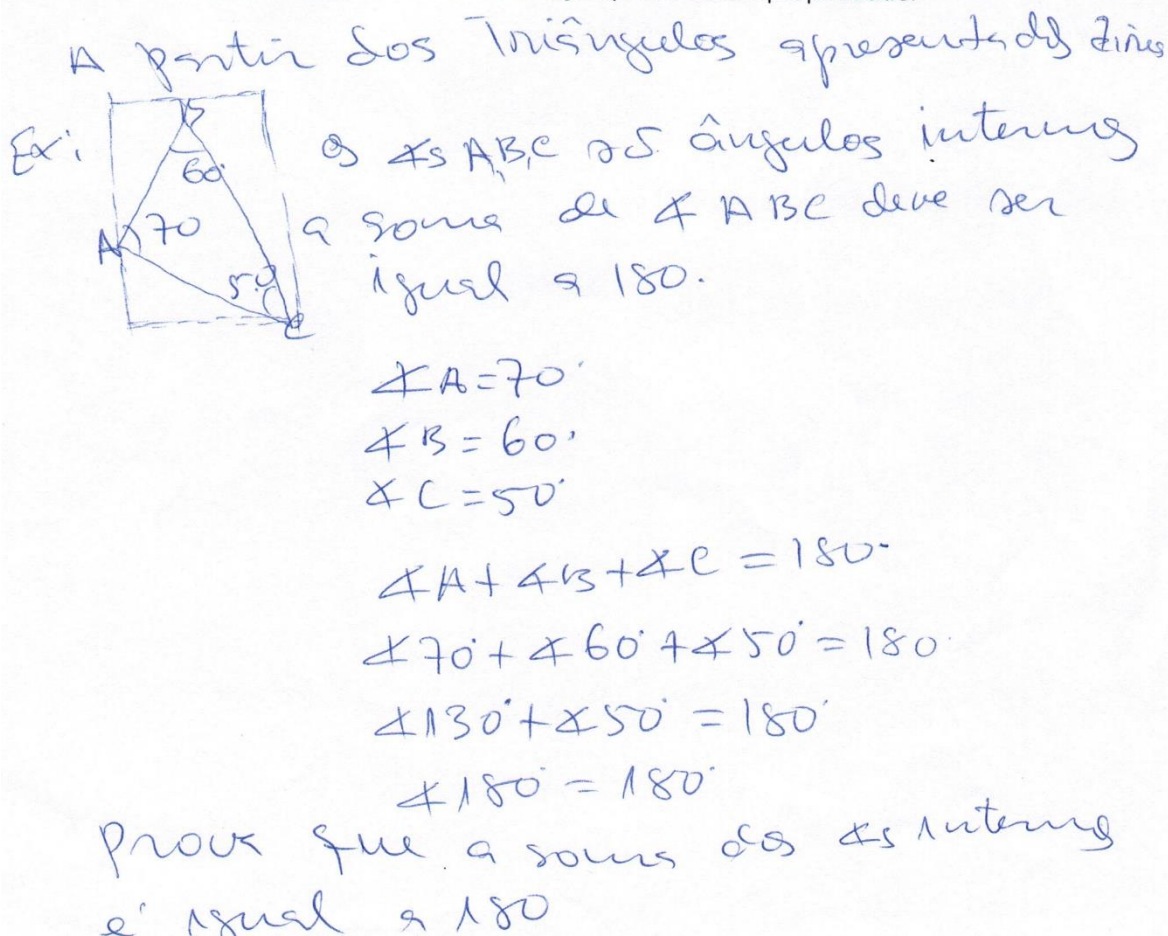 A partir dos Triângulos apresentados
Ex:
B
60
A
70
50
C
os ∡s A,B,C são ângulos internos
a soma de ∡ ABC deve ser
igual a 180.
∡A=70°
∡B=60°
∡C=50°
∡A+∡B+∡C=180°
∡70°+∡60°+∡50°=180
∡130°+∡50°=180°
∡180°=180°
Prova que a soma dos ∡s internos
é igual a 180